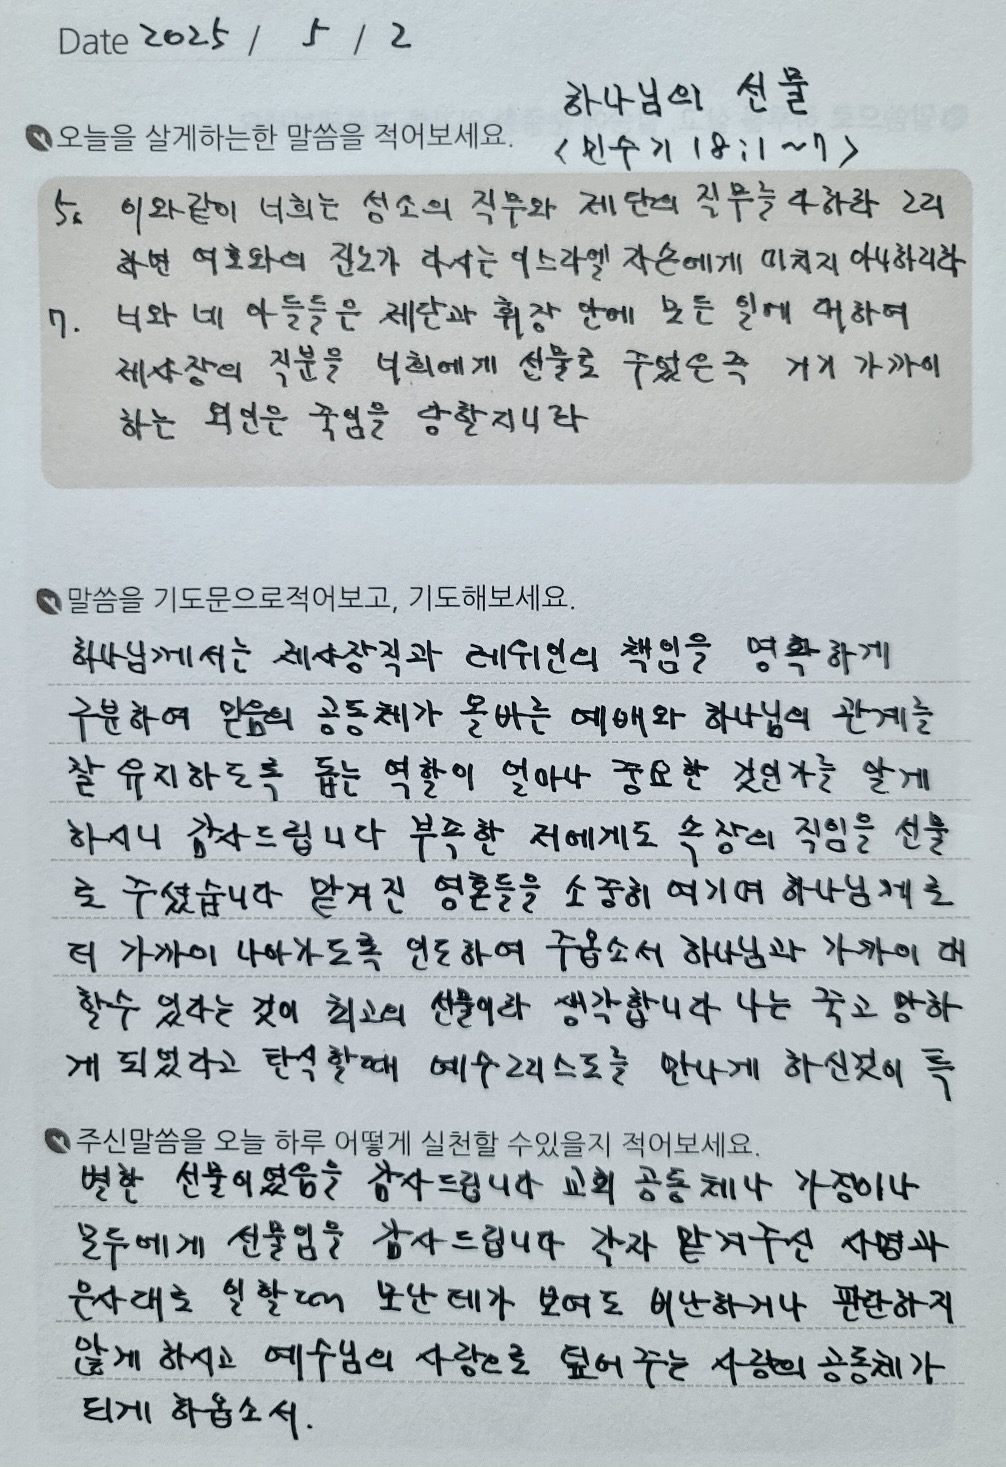 Date 2025 / 5 / 2
하나님의 선물
오늘을 살게하는한 말씀을 적어보세요.
<민수기 18:1~7>
5. 이와같이 너희는 성소의 직무와 제단의 직무를 다하라 그리
하면 여호와의 진노가 다시는 이스라엘 자손에게 미치지 아니하리라
7. 너와 네 아들들은 제단과 휘장 안에 모든 일에 대하여
제사장의 직분을 너희에게 선물로 주었은즉 거기 가까이
하는 외인은 죽임을 당할지니라
말씀을 기도문으로적어보고, 기도해보세요.
하나님께서는 제사장직과 레위인의 책임을 명확하게
구분하여 믿음의 공동체가 올바른 예배와 하나님의 관계를
잘 유지하도록 돕는 역할이 얼마나 중요한 것인가를 알게
하시니 감사드립니다 부족한 저에게도 속장의 직임을 선물
로 주셨습니다 맡겨진 영혼들을 소중히 여기며 하나님께로
더 가까이 나아가도록 인도하여 주옵소서 하나님과 가까이 대
할수 있다는 것이 최고의 선물이라 생각합니다 나는 죽고 망하
게 되었다고 탄식할때 예수그리스도를 만나게 하신것이 특
주신말씀을 오늘 하루 어떻게 실천할 수있을지 적어보세요.
별한 선물이었음을 감사드립니다 교회 공동체나 가정이나
모두에게 선물임을 감사드립니다 각자 맡겨주신 사명과
은사대로 일할때 모난데가 보여도 비난하거나 판단하지
않게 하시고 예수님의 사랑으로 덮어 주는 사랑의 공동체가
되게 하옵소서.